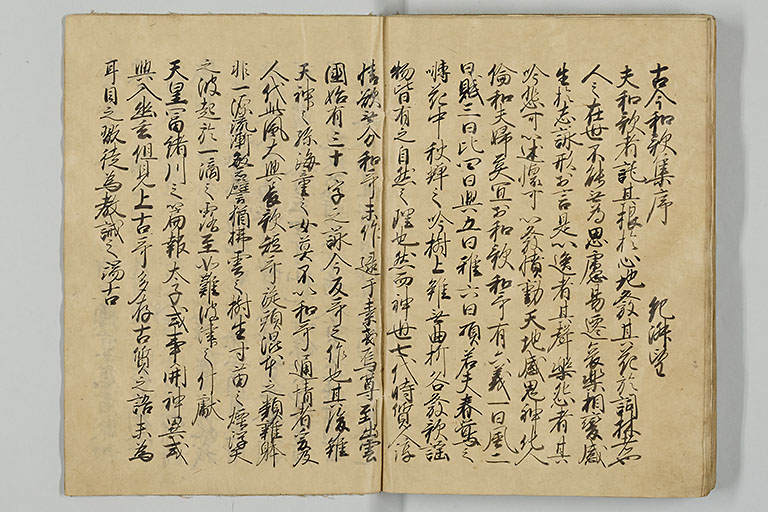 古今和歌集序　紀淑望
夫和歌者託其根於心地發其花於詞林者也
人之在世不能無為思慮易遷哀樂相變感
生於志詠形於言是以逸者其聲樂怨者其
吟悲可以述懐可以發憤動天地感鬼神化人
倫和夫婦莫宜於和歌和哥有六義一曰風二
曰賦三曰比四曰興五曰雅六曰頌若夫春鶯之
囀花中秋蝉之吟樹上雖無曲折各發歌謡
物皆有之自然之理也然而神世七代時質人淳
情欲無分和哥未作逮于素戔烏尊到出雲
國始有三十一字之詠今反哥之作也其後雖
天神之孫海童之女莫不以和哥通情者爰及
人代此風大興長歌短哥旋頭混本之類雜躰
非一源流漸繁譬猶拂雲之樹生寸苗之煙浮天
之波起於一滴之露至如難波津之什獻
天皇冨緒川之篇報太子或事關神異或
興入幽玄但見上古哥多存古質之語未為
耳目之翫徒為教誡之端古